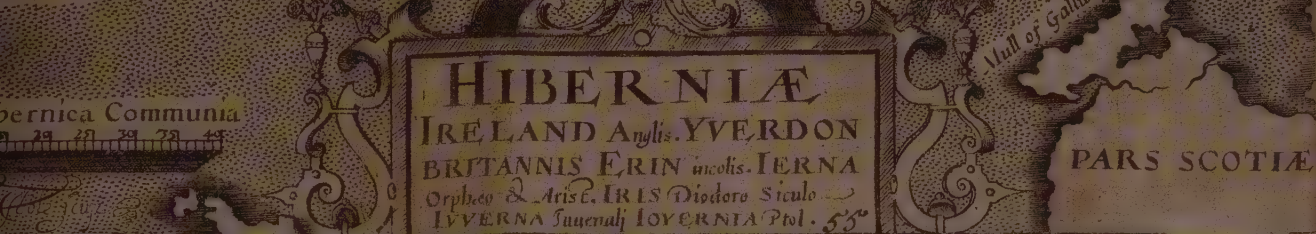 bernica Communia
HIBERNIÆ
IRELAND Anglis. YVERDON
BRITANNIS ERIN incolis. IERNA
Orpheo & Arist. IRIS Diodoro Siculo
IVVERNA Juuenali IOVERNIA Ptol. 55
Mull of Gall
PARS SCOTIÆ